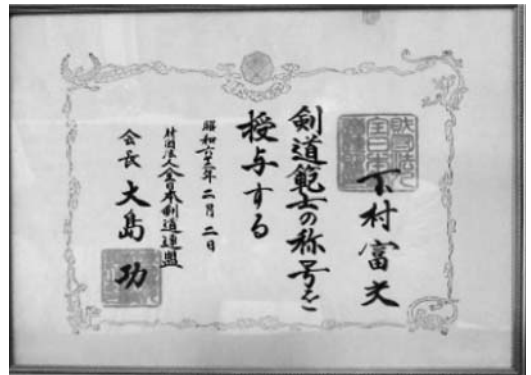 下村富夫
剣道範士の称号を
授与する
昭和 二月二日
財団法人全日本剣道連盟
会長 大島 功